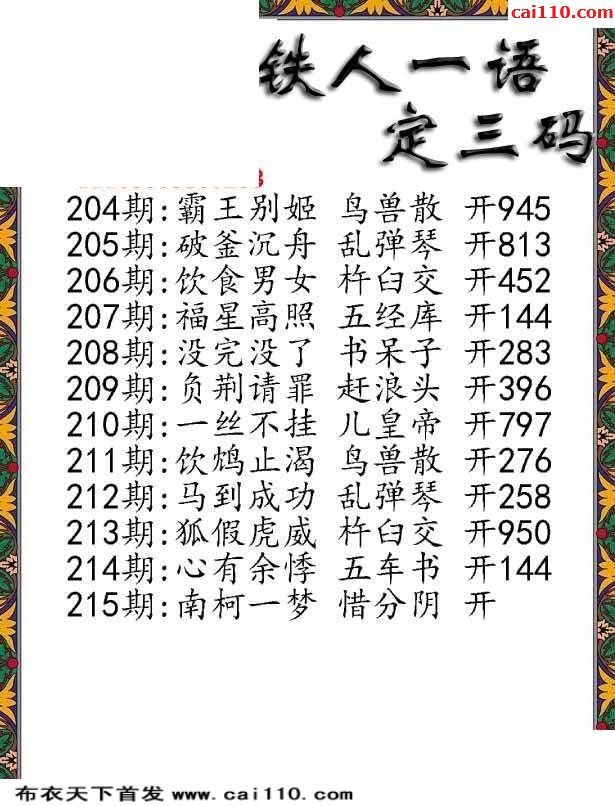 cai110.com
铁人一语
定三码
204期:霸王别姬 鸟兽散 开945
205期:破釜沉舟 乱弹琴 开813
206期:饮食男女 杵臼交 开452
207期:福星高照 五经库 开144
208期:没完没了 书呆子 开283
209期:负荆请罪 赶浪头 开396
210期:一丝不挂 儿皇帝 开797
211期:饮鸩止渴 鸟兽散 开276
212期:马到成功 乱弹琴 开258
213期:狐假虎威 杵臼交 开950
214期:心有余悸 五车书 开144
215期:南柯一梦 惜分阴 开
布衣天下首发 www.cai110.com